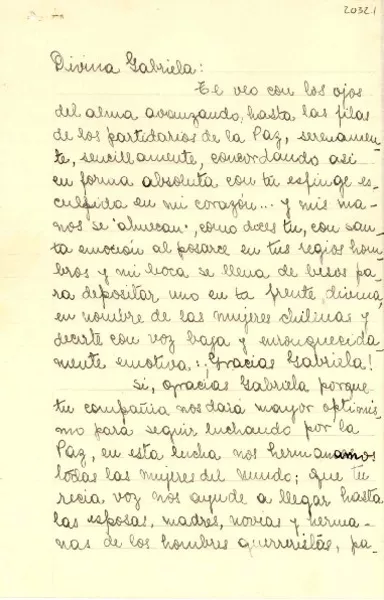 20321
Divina Gabriela:
Te veo con los ojos
del alma avanzando, hasta las filas
de los partidarios de la Paz, serenamen-
te, sencillamente, concordando así
en forma absoluta con tu esfinge es-
culpida en mi corazón... y mis ma-
nos se "ahuecan", como dices tu, con san-
ta emoción al posarce en tus regios hom-
bros y mi boca se llena de besos pa-
ra depositar uno en tu frente, divina,
en nombre de las mujeres chilenas y
decirte con voz baja y enronquecida-
mente emotiva: ¡Gracias Gabriela!
Si, gracias Gabriela porque
tu compañia nos dará mayor optimis-
mo para seguir luchando por la
Paz, en esta lucha nos hermanamos
todas las mujeres del mundo; que tu
recia voz nos ayude a llegar hasta
las esposas, madres, novias y herma-
nas de los hombres guerreristas, pa-